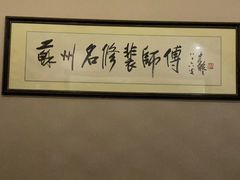 蘇州名修裝師傅